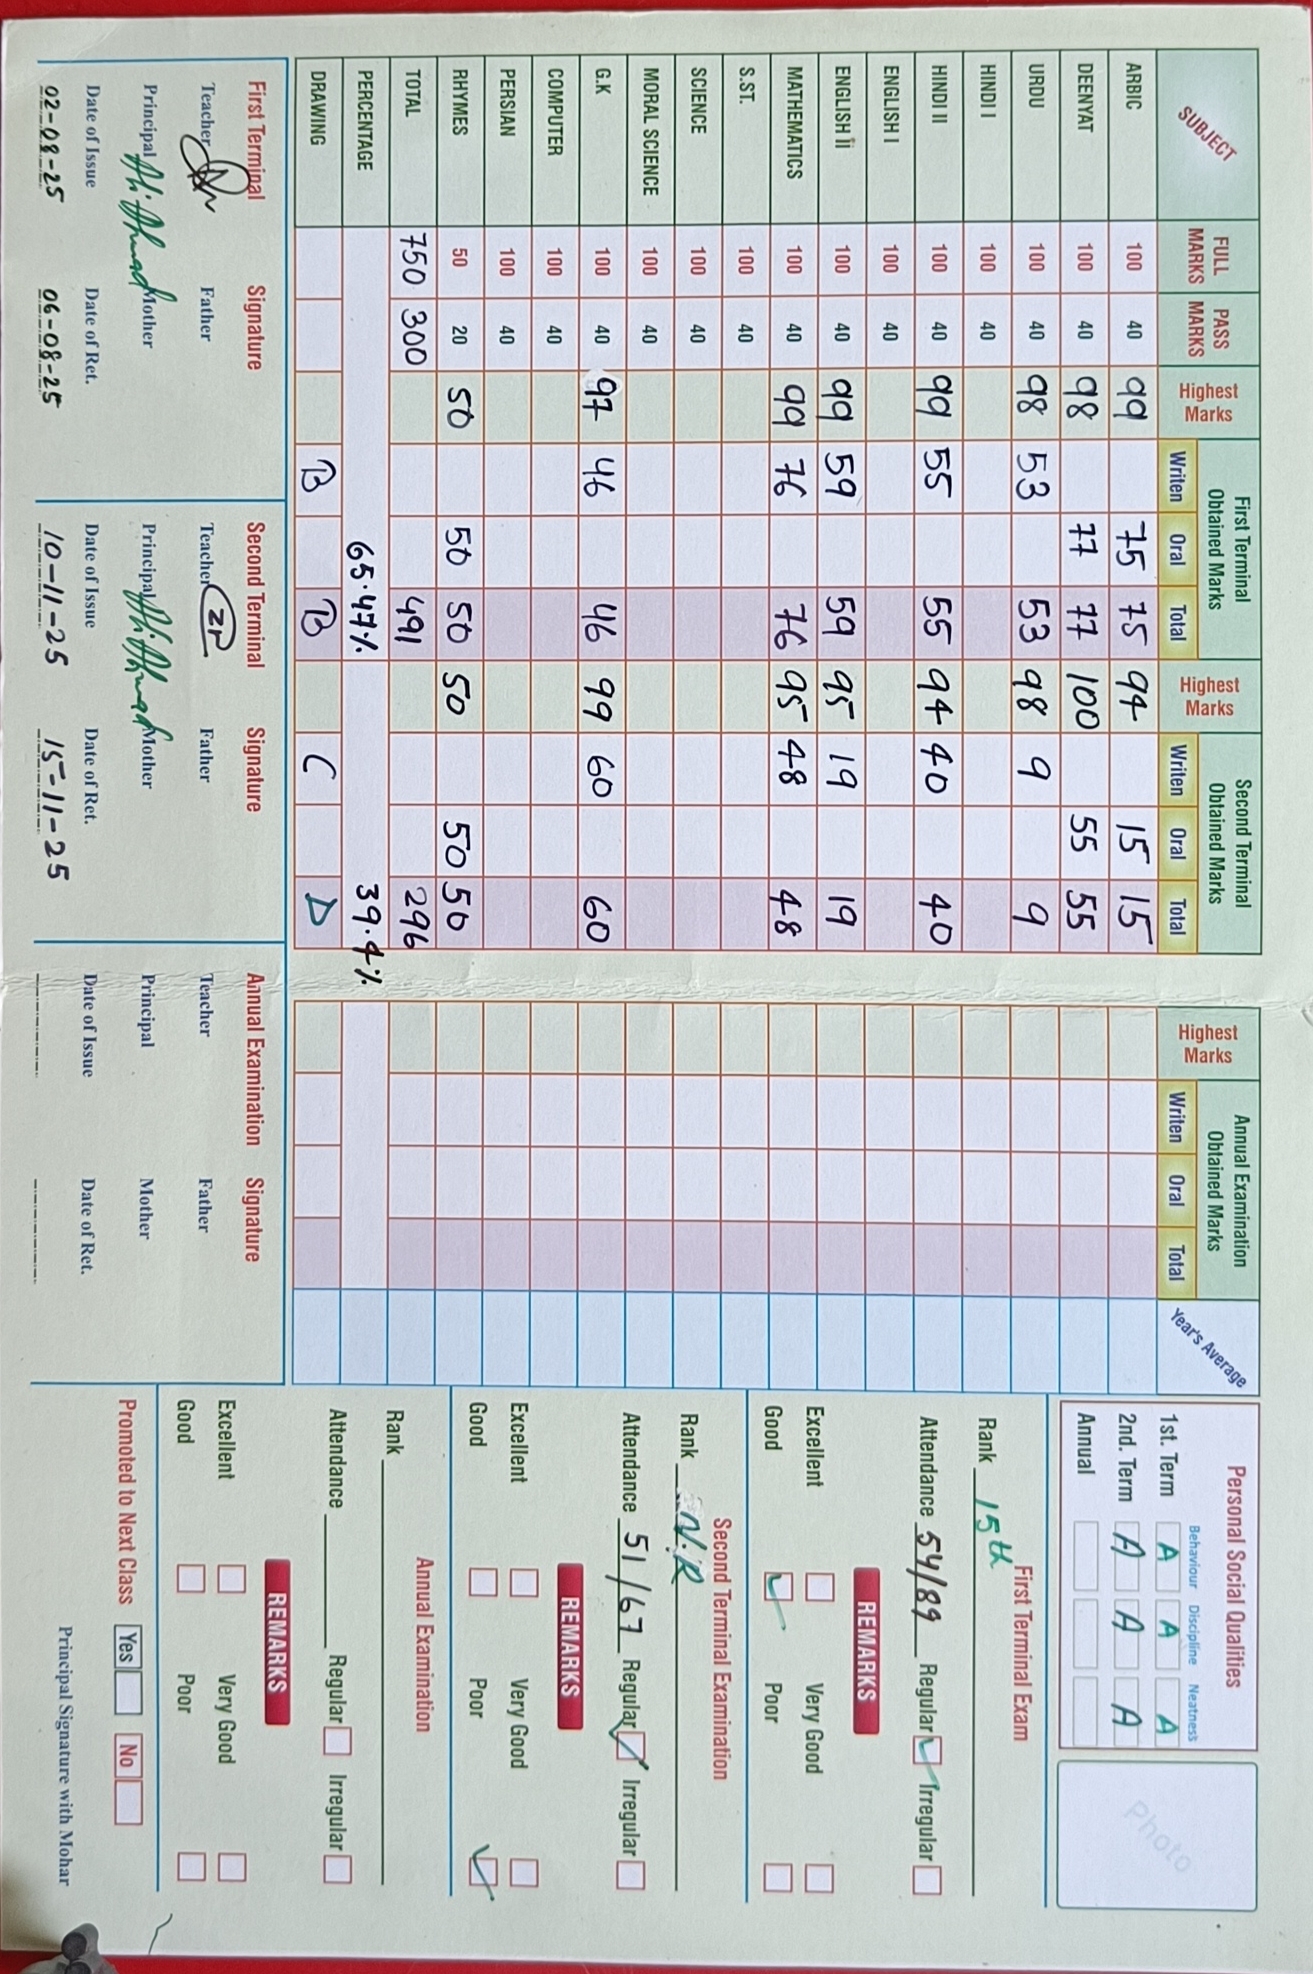 SUBJECT FULL MARKS PASS MARKS Highest Marks First Terminal Obtained Marks Writen Oral Total Highest Marks Second Terminal Obtained Marks Writen Oral Total Highest Marks Annual Examination Obtained Marks Writen Oral Total Year's Average
ARBIC 100 40 99 75 75 94 15 15
DEENYAT 100 40 98 77 77 100 55 55
URDU 100 40 98 53 53 98 9 9
HINDI I 100 40
HINDI II 100 40 99 55 55 94 40 40
ENGLISH I 100 40
ENGLISH II 100 40 99 59 59 95 19 19
MATHEMATICS 100 40 99 76 76 95 48 48
S.ST. 100 40
SCIENCE 100 40
MORAL SCIENCE 100 40
G.K 100 40 97 46 46 99 60 60
COMPUTER 100 40
PERSIAN 100 40
RHYMES 50 20 50 50 50 50 50 50
TOTAL 750 300 491 296
PERCENTAGE 65.47% 39.4%
DRAWING B B C D
First Terminal Signature
Teacher Father
Principal Ali Ahmad Mother
Date of Issue Date of Ret.
02-08-25 06-08-25
Second Terminal Signature
Teacher Father
Principal Ali Ahmad Mother
Date of Issue Date of Ret.
10-11-25 15-11-25
Annual Examination Signature
Teacher Father
Principal Mother
Date of Issue Date of Ret.
Personal Social Qualities
Behaviour Discipline Neatness
1st. Term A A A
2nd. Term A A A
Annual
Photo
First Terminal Exam
Rank 15th
Attendance 54/89 Regular Irregular
REMARKS
Excellent Very Good
Good Poor
Second Terminal Examination
Rank N.R
Attendance 51/67 Regular Irregular
REMARKS
Excellent Very Good
Good Poor
Annual Examination
Rank
Attendance Regular Irregular
REMARKS
Excellent Very Good
Good Poor
Promoted to Next Class Yes No
Principal Signature with Mohar